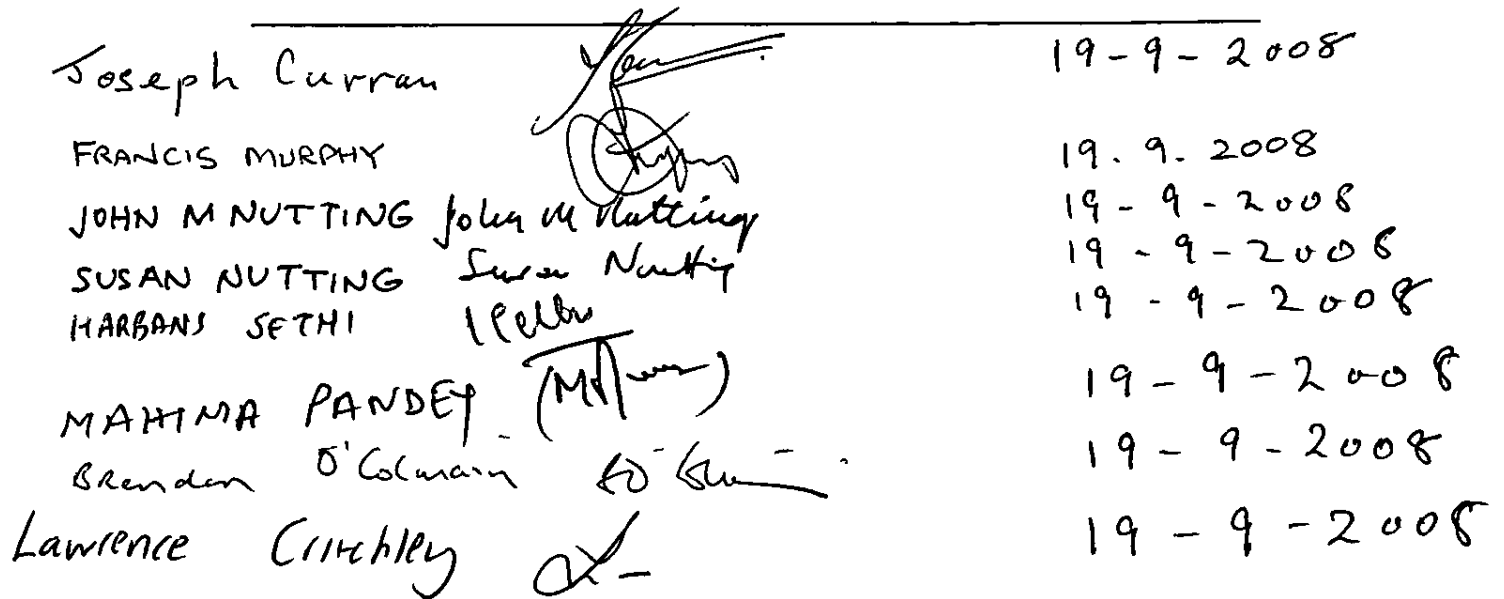 Joseph Curran 19-9-2008
FRANCIS MURPHY 19.9.2008
JOHN M NUTTING John M Nutting 19-9-2008
SUSAN NUTTING Susan Nutting 19-9-2008
HARBANS SETHI 19-9-2008
MAHIMA PANDEY 19-9-2008
Brendan O'Colmain 19-9-2008
Lawrence Critchley 19-9-2008